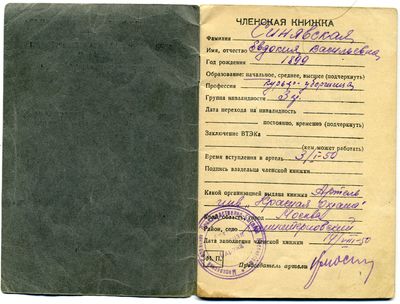 ЧЛЕНСКАЯ КНИЖКА
Фамилия Синявская
Имя, отчество Евдокия Васильевна
Год рождения 1899
Образование: начальное, среднее, высшее (подчеркнуть)
Профессия уборщица
Группа инвалидности 3 гр.
Дата перехода на инвалидность
постоянно, временно (подчеркнуть)
Заключение ВТЭКа
(кем может работать)
Время вступления в артель 3/I-50
Подпись владельца членской книжки
Какой организацией выдана книжка Артель
инв. "Красная Охана"
Край, область, город Москва
Район, село Коминтерновский
Дата заполнения членской книжки 19/VIII-50
М. П.
Председатель артели